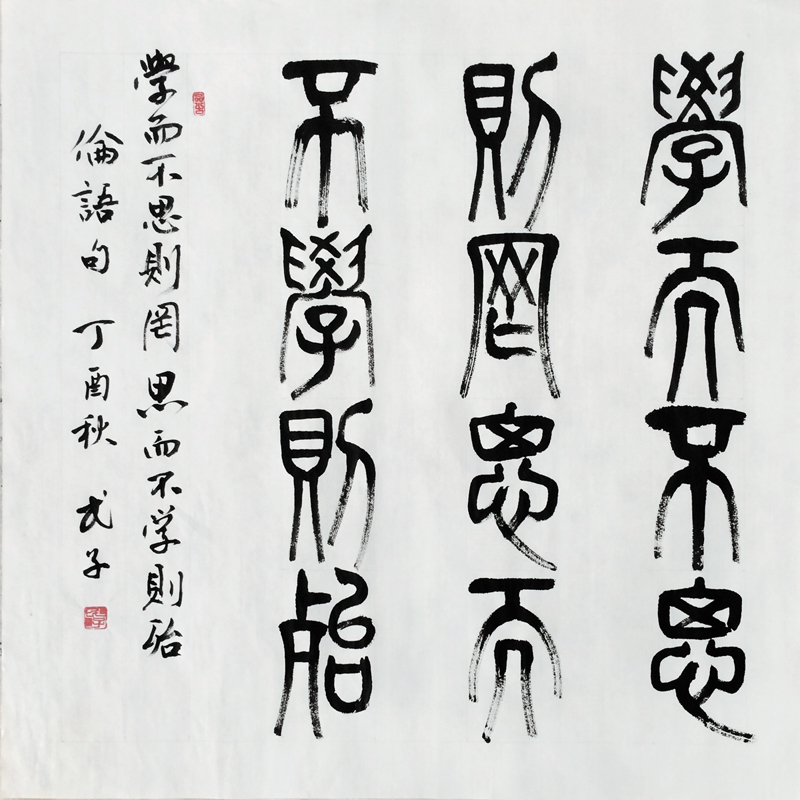 學而不思
則罔思而
不學則殆
學而不思則罔思而不学則殆
倫語句 丁酉秋 弌子